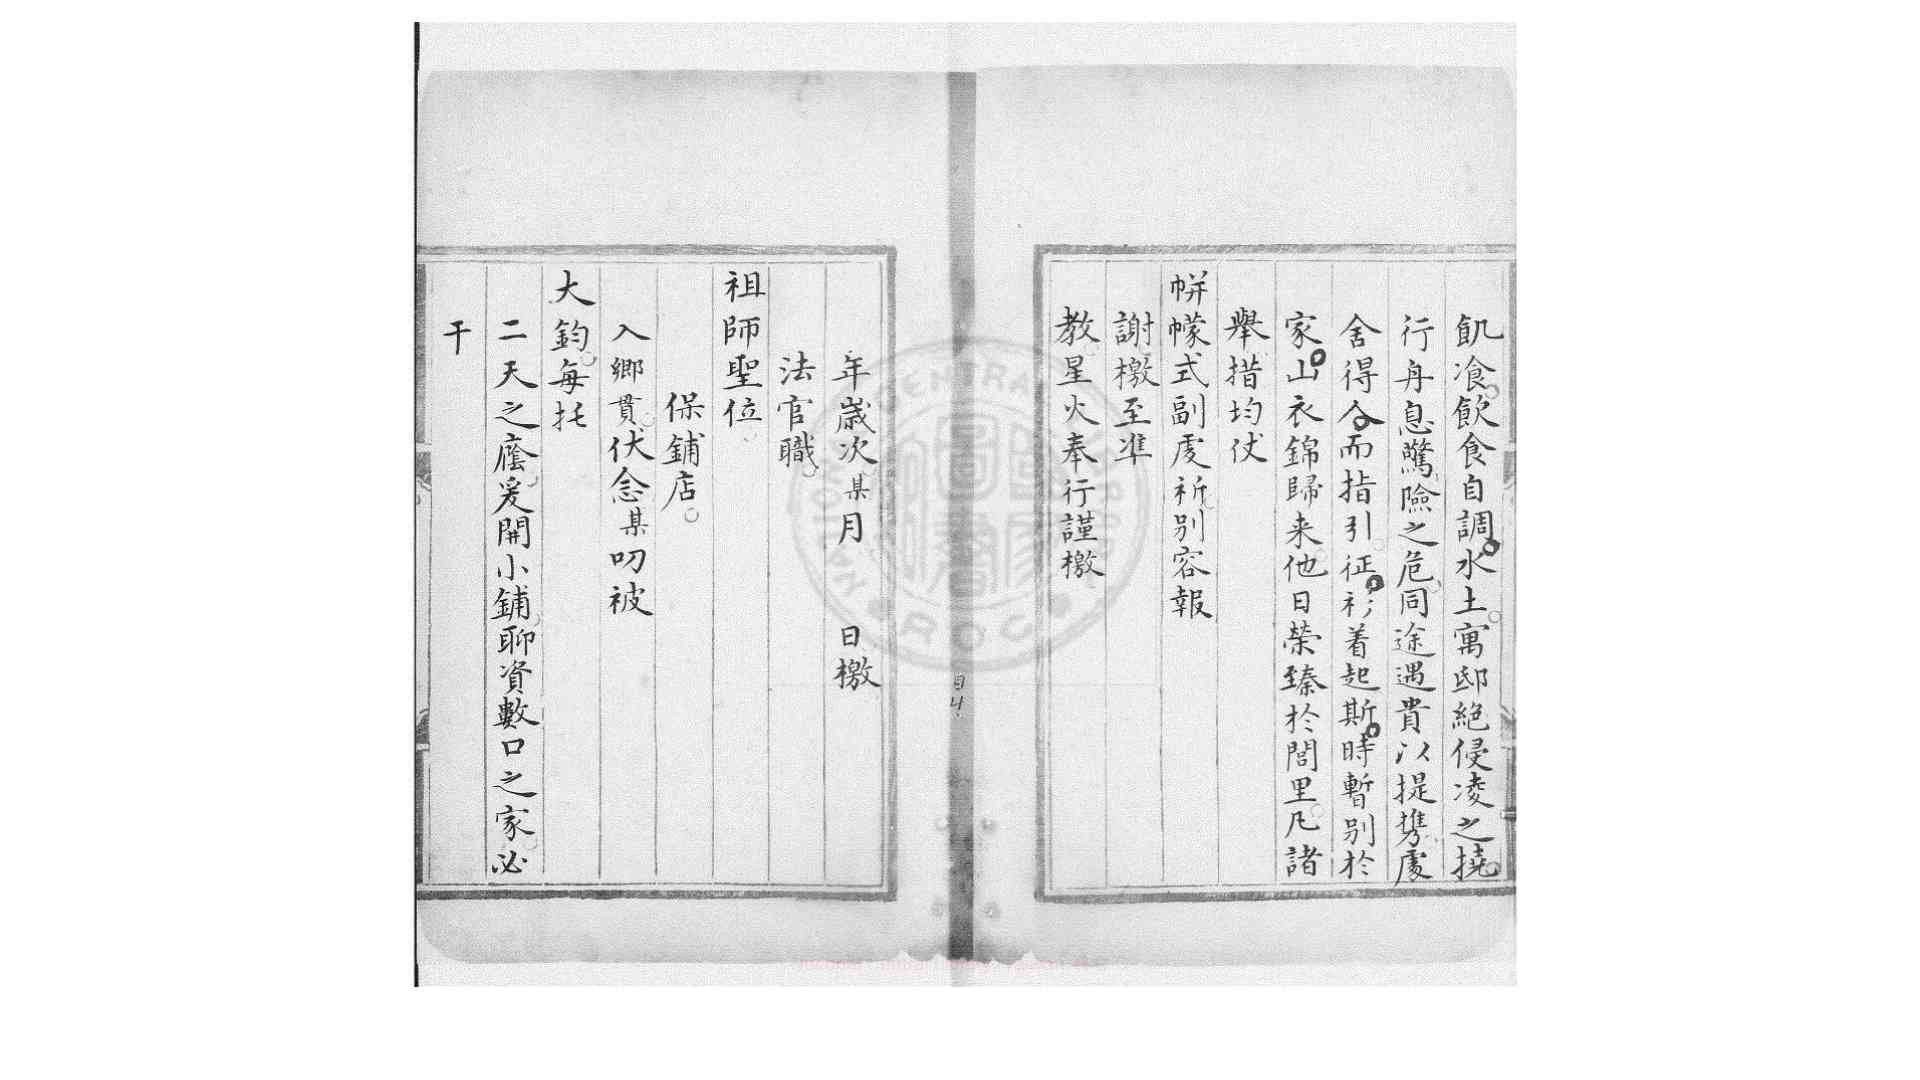 飢飡飲食自調水土寓邸絶侵凌之撓
行舟息驚險之危同途遇貴以提携處
舍得人而指引征衫着起斯時暫别於
家山衣錦歸来他日榮臻於閭里凡諸
舉措均仗
帡幪式副虔祈别容報
謝檄至準
教星火奉行謹檄
年歲次某月 日檄
法官職
祖師聖位
保鋪店
入鄉貫伏念某叨被
大鈞每托
二天之廕爰開小鋪聊資數口之家必
干
NATIONAL CENTRAL LIBRARY R.O.C.